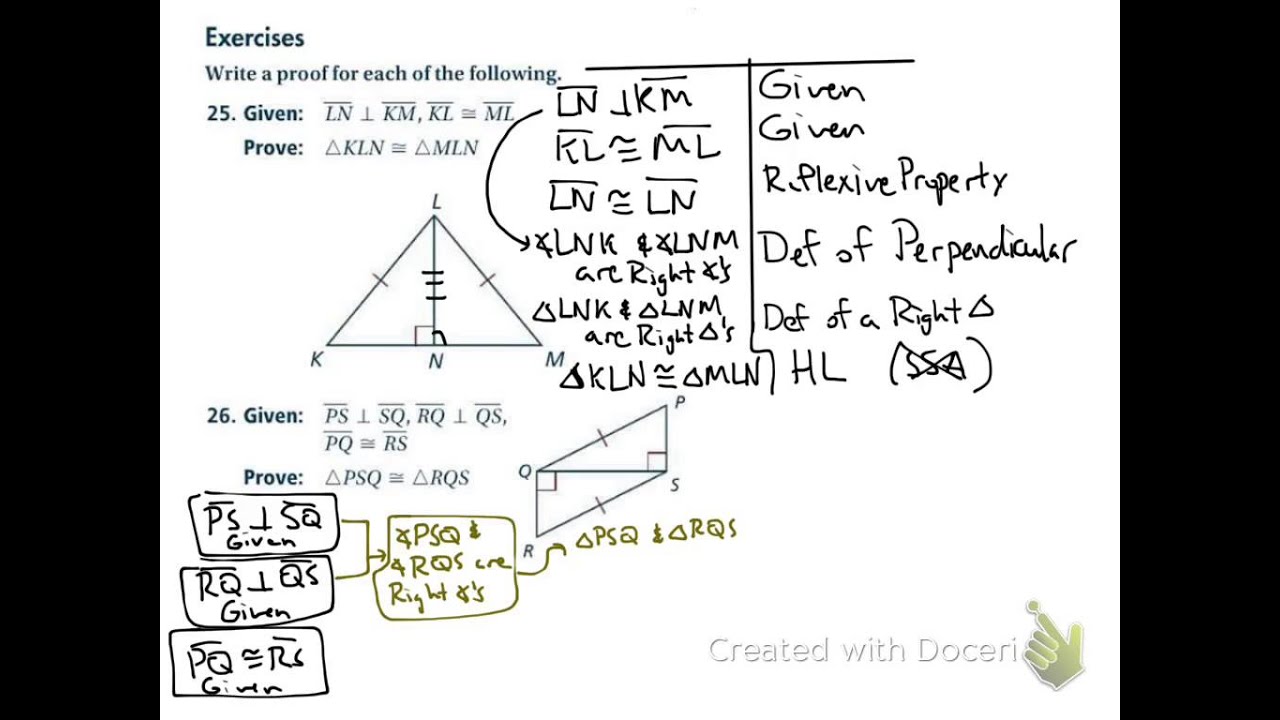 Exercises
Write a proof for each of the following.
25. Given: LN ⊥ KM, KL ≅ ML
Prove: △KLN ≅ △MLN
L
K
N
M
LN ⊥ KM
Given
KL ≅ ML
Given
LN ≅ LN
Reflexive Property
∢LNK & ∢LNM
are Right ∢'s
Def of Perpendicular
△LNK & △LNM
are Right △'s
Def of a Right △
△KLN ≅ △MLN
HL (SSA)
26. Given: PS ⊥ SQ, RQ ⊥ QS,
PQ ≅ RS
Prove: △PSQ ≅ △RQS
P
Q
S
R
PS ⊥ SQ
Given
RQ ⊥ QS
Given
PQ ≅ RS
Given
∢PSQ &
∢RQS are
Right ∢'s
△PSQ & △RQS
Created with Doceri